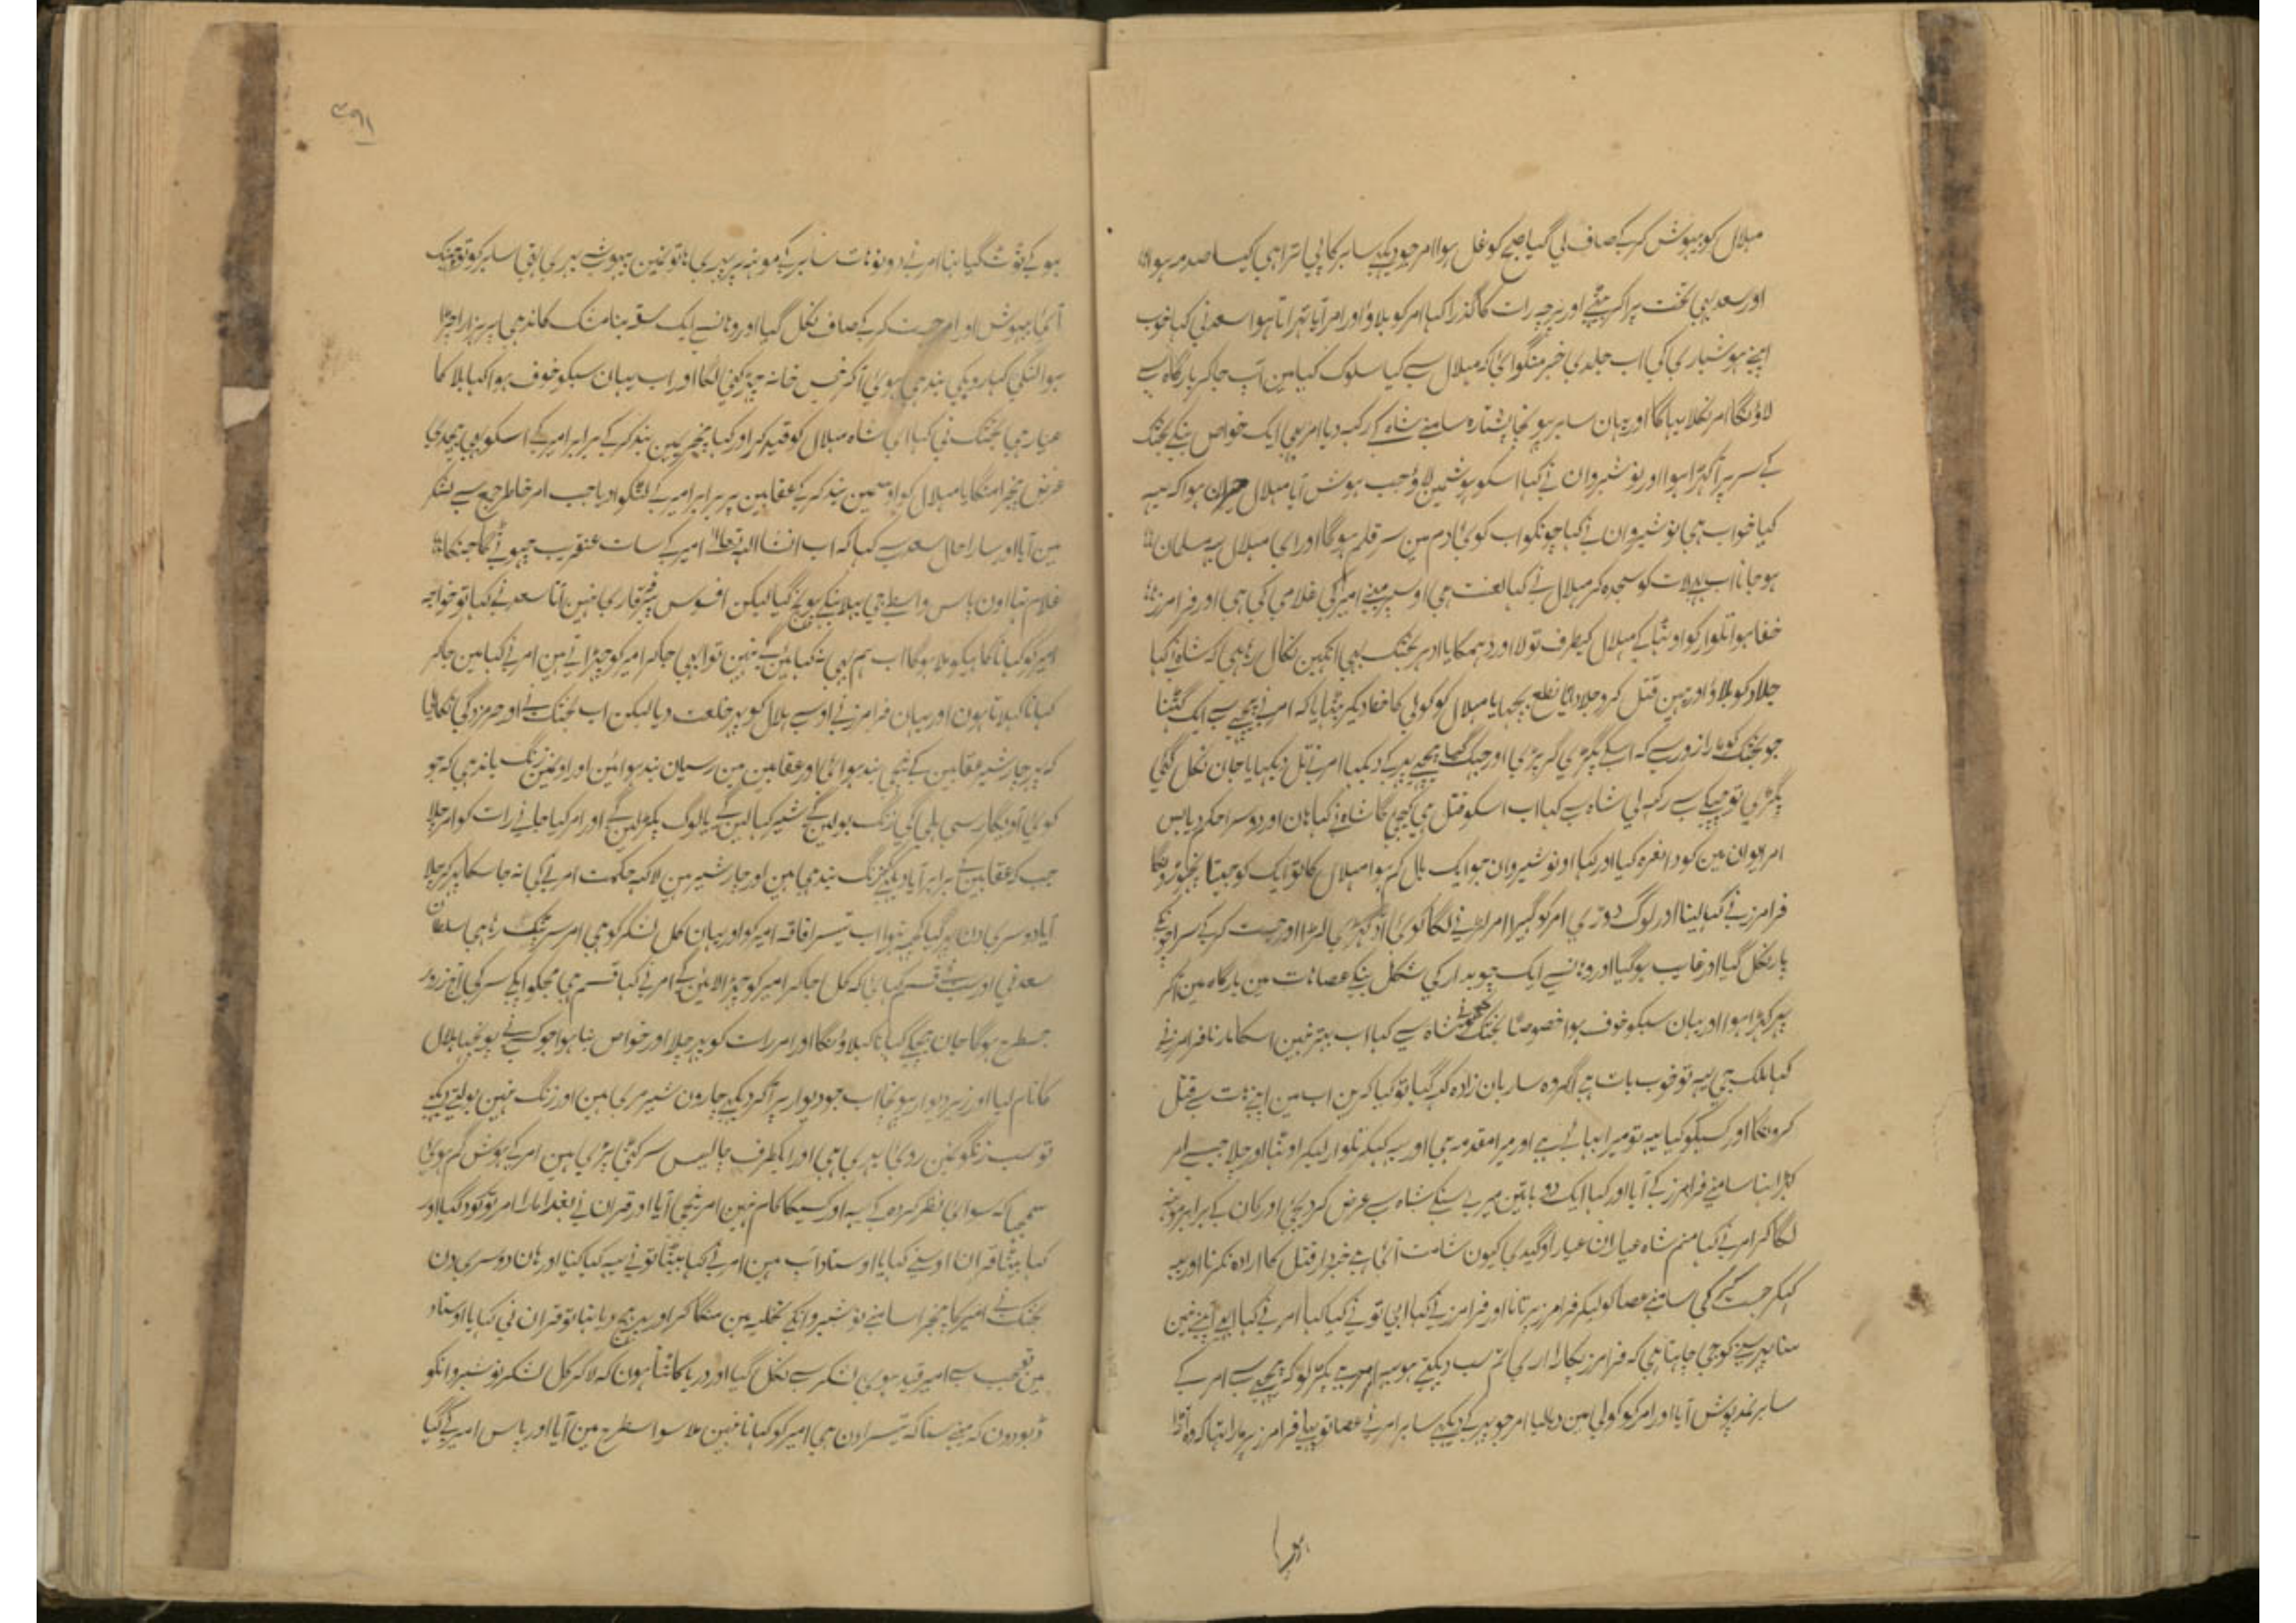 ہلال کو بیہوش کرکے صاف لی گیا صبح کو غل ہوا امر جو دیکہے سابر کا پی اترا ہی کیسا صدمہ ہوا
اور سعد بہی تخت پر آکر بیٹہے اور پرچہ رات کا گذرا کہا امر کو بلاؤ اور امر آیا تہراتا ہوا سعد نی کہا خوب
اپنے ہوشیاری کی اب جلدی خبر منگوائی کہ ہلال سے کیا سلوک کیا مین آپ جاکر بارگاہ سے
لاؤنگا امر نکلا بہاگا اور یہان سابر پہونچا پشتارہ سامنے شاہ کے رکہہ دیا امر بہی ایک خواص بنکے بختک
کے سر پر آکہڑا ہوا اور نوشیروان نے کہا اسکو ہوشمین لاؤ جب ہوش آیا ہلال حیران ہوا کہ یہہ
کیا خواب ہی نوشیروان نے کہا چونکو اب کوئی دم مین سر قلم ہوگا اور ای ہلال یہہ مسلمان
ہو جانا اب لات کو سجدہ کر ہلال نے کہا لعنت ہی اوسپر مینے امیر کی غلامی کی ہی اور فرامرز
خفا ہوا تلوار کو اوٹہا کے ہلال کیطرف تولا اور دہمکایا ادہر بختک بہی انکہین نکال رہا ہی کہ شاہ نے کہا
جلاد کو بلاؤ اور یہین قتل کرو جلاد آیا نطع بچہایا ہلال کو کولی کا خفا دیکر بٹہایا کہ امر نے پیچہے سے ایک گہٹنا
جو بختک کو مارا زور سے کہ اسکے پگڑی گر پڑی اور جہک گیا پیچہے پہرکے دیکہا امر نے تل دیکہایا جان نکل گئی
پگڑی تو چپکے سے رکہہ لی شاہ سے کہا اب اسکو قتل ہی کیجی گا شاہ نے کہا ہان اور دوسرا حکم دیا بس
امر ایوان مین کودا نعرہ کیا اور کہا او نوشیروان جو ایک بال کم ہوا ہلال کا تو ایک کو جیتا نچہوڑونگا
فرامرز نے کہا لینا اور لوگ دوڑی امر کو گہیرا امر لڑنے لگا کوئی آدہ گہڑی لڑا اور جست کرکے سراچونکے
پار نکل گیا اور غایب ہوگیا اور وہانسے ایک چوبدار کی شکل بنکے عصا ہات مین بارگاہ مین آکر
پہر کہڑا ہوا اور یہان سبکو خوف ہوا خصوصا بختک کو شاہ سے کہا اب بہتر نہین اسکا مارنا فرامرز نے
کہا ملک جی یہہ تو خوب بات ہے اگر وہ ساربان زادہ کہہ گیا تو کیا کرین اب مین اپنے ہات سے قتل
کرونگا اور کسیکو کیا یہہ تو میرا بہائی ہے اور میرا مقدمہ ہی اور یہہ کہیکر تلوار لیکر اوٹہا اور چلا جیسے امر
کہڑا تہا سامنے فرامرز کے آیا اور کہا ایک دو باتین میری سنکے شاہ سے عرض کر دیجئی اور کان کے برابر مونہہ
لگا کر امر نے کہا منم شاہ عیاران عیار او گیدی کیون شامت آئی ہے خبردار قتل کا ارادہ نکرنا اور یہہ
کہیکر جست کی سامنے عصا کو لیکر فرامرز پر تانا اور فرامرز نے کہا ابی تو نے کیا کہا امر نے کہا ابہی آپنے نہین
سنا پہر سننے کو جی چاہتا ہی کہ فرامرز پکارا اری تم سب دیکہتے ہو یہہ امر ہے پکڑ لو کہ پیچہے سے امر کے
سابر نمد پوش آیا اور امر کو کولی مین دبا لیا امر جو پہر کے دیکہے سابر امر نے عصا تو پہلے فرامرز پر مارا تہا کہ وہ آڑا
ہو کے ٹوٹ گیا تہا امر نے دونو ہات سابر کے مونہہ پر پہیری ہاتونمین بیہوشی بہری تہی سابر کو تو چہینک
آئی بیہوش اور امر جست کرکے صاف نکل گیا اور وہانسے ایک سقہ بنا مشک کاندہی پر ہزارا چہڑا
ہوا لنگی کہاروی بندہی ہوئی آکر خس خانہ چہڑکنی لگا اور اب یہان سبکو خوف ہوا کہا بلا کا
عیار ہی بختک نی کہا ای شاہ ہلال کو قید کر اور کہا پنجریمین بند کرکے برابر امیر کے اسکو بہی
غرض پنجرا منگایا ہلال کو اوسمین بند کرکے عقابین پر برابر امیر کے لٹکوا دیا جب امر خاطر جمع سے لشکر
مین آیا اور سارا حال سعد سے کہا کہ اب انشا اللہ تعالی امیر کے سات عنقریب چہوٹیگا جنکا
غلام تہا اون پاس واسطے جی بہلانیکے پہونچ گیا لیکن افسوس بیقراری نہین آتا سعد نے کہا تو خواجہ
امیر کو کہانا کاہیکو ملا ہوگا اب ہم بہی نہ کہائینگے نہین تو ابہی جاکر امیر کو چہڑاتے ہین امر نے کہا مین جاکر
کہانا کہلاتا ہون اور یہان فرامرز نے اوسے ہلال کو پہر خلعت دیا لیکن اب بختک نے اور حرمزدگی نکالی
کہ پہر چار شیر عقابین کے نیچی بندہوائی اور عقابین مین رسیان بندہوائین اور اونمین زنگ باندہی کہ جو
کوئی آویگا رسی ہلی گی زنگ بولینگے شیر کہا لینگے یا لوگ پکڑ لینگے اور امر کیا جانے رات کو امر چلا
جب کہ عقابین کے برابر آیا دیکہے زنگ بندہی ہین اور چار شیر ہین لاکہہ حکمت امر نے کی نہ جا سکا پہر کر چلا
آیا دوسری دن پہر گیا کچہہ نہوا اب تیسرا فاقہ امیر کو اور یہان کل لشکر کو ہی امر سر پٹک رہا ہی سلطان
سعد نی اور سبنے قسم کہائی کہ کل جاکر امیر کو چہڑا لائینگے امر نے کہا قسم ہی مجکو آپکے سر کی آج ضرور
جسطرح ہوگا جان بیچکے کہانا کہلاؤنگا اور امر رات کو پہر چلا اور خواص بنا ہوا جو کسینے پونچہا ہلال
کا نام لیا اور زیر دیوار پہونچا اب جو دیوار پر آکر دیکہے چارون شیر مری ہین اور زنگ نہین بولتے دیکہے
تو سب زنگونمین روئی بہری ہی اور ایکطرف چالیس سر کٹی پڑی ہین امر کے ہوش گم ہوئی
سمجہا کہ سوای نظر کردہ کے یہہ اور کسیکا کام نہین امر نیچی آیا اور قران نے بغدا مارا امر تو کود گیا اور
کہا بیٹا قران اوسنے کہا یا اوستاد آپ ہین امر نے کہا بیٹا تونے یہہ کیا کیا اور ہان دوسری دن
بختک نے امیر کا پنجرا سامنے نوشیروانکے تخلیہ مین منگا کر اور پہر بہیج دیا تہا تو قران نی کہا یا اوستاد
مین تعجب سے امیر قید ہوی لشکر سے نکل گیا اور دریا کاٹتا ہون کہ لاکر کل لشکر نوشیروانکو
ڈبو دون کہ مینے سنا کہ تیسرا دن ہی امیر کو کہانا نہین ملا سو اسطرح مین آیا اور پاس امیر کے گیا